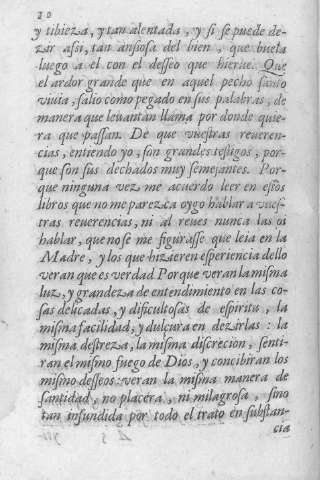 20
y tibieza, y tan alentada, y si se puede de-
zir assi, tan ansiosa del bien, que buela
luego a el con el desseo que hierue. Que
el ardor grande que en aquel pecho santo
viuia, salio como pegado en sus palabras, de
manera que leuantan llama por donde quie-
ra que passan. De que vuestras reueren-
cias, entiendo yo, son grandes testigos, por-
que son sus dechados muy semejantes. Por-
que ninguna vez me acuerdo leer en estos
libros que no me parezca oygo hablar a vues-
tras reuerencias, ni al reues nunca las oi
hablar, que no se me figurasse que leia en la
Madre, y los que hizieren esperiencia dello
veran que es verdad Porque veran la misma
luz, y grandeza de entendimiento en las co-
sas delicadas, y dificultosas de espiritu, la
misma facilidad, y dulçura en dezirlas: la
misma destreza, la misma discrecion, senti-
ran el mismo fuego de Dios, y concibiran los
mismo desseos: veran la misma manera de
santidad, no placera, ni milagrosa, sino
tan infundida por todo el trato en substan-
cia